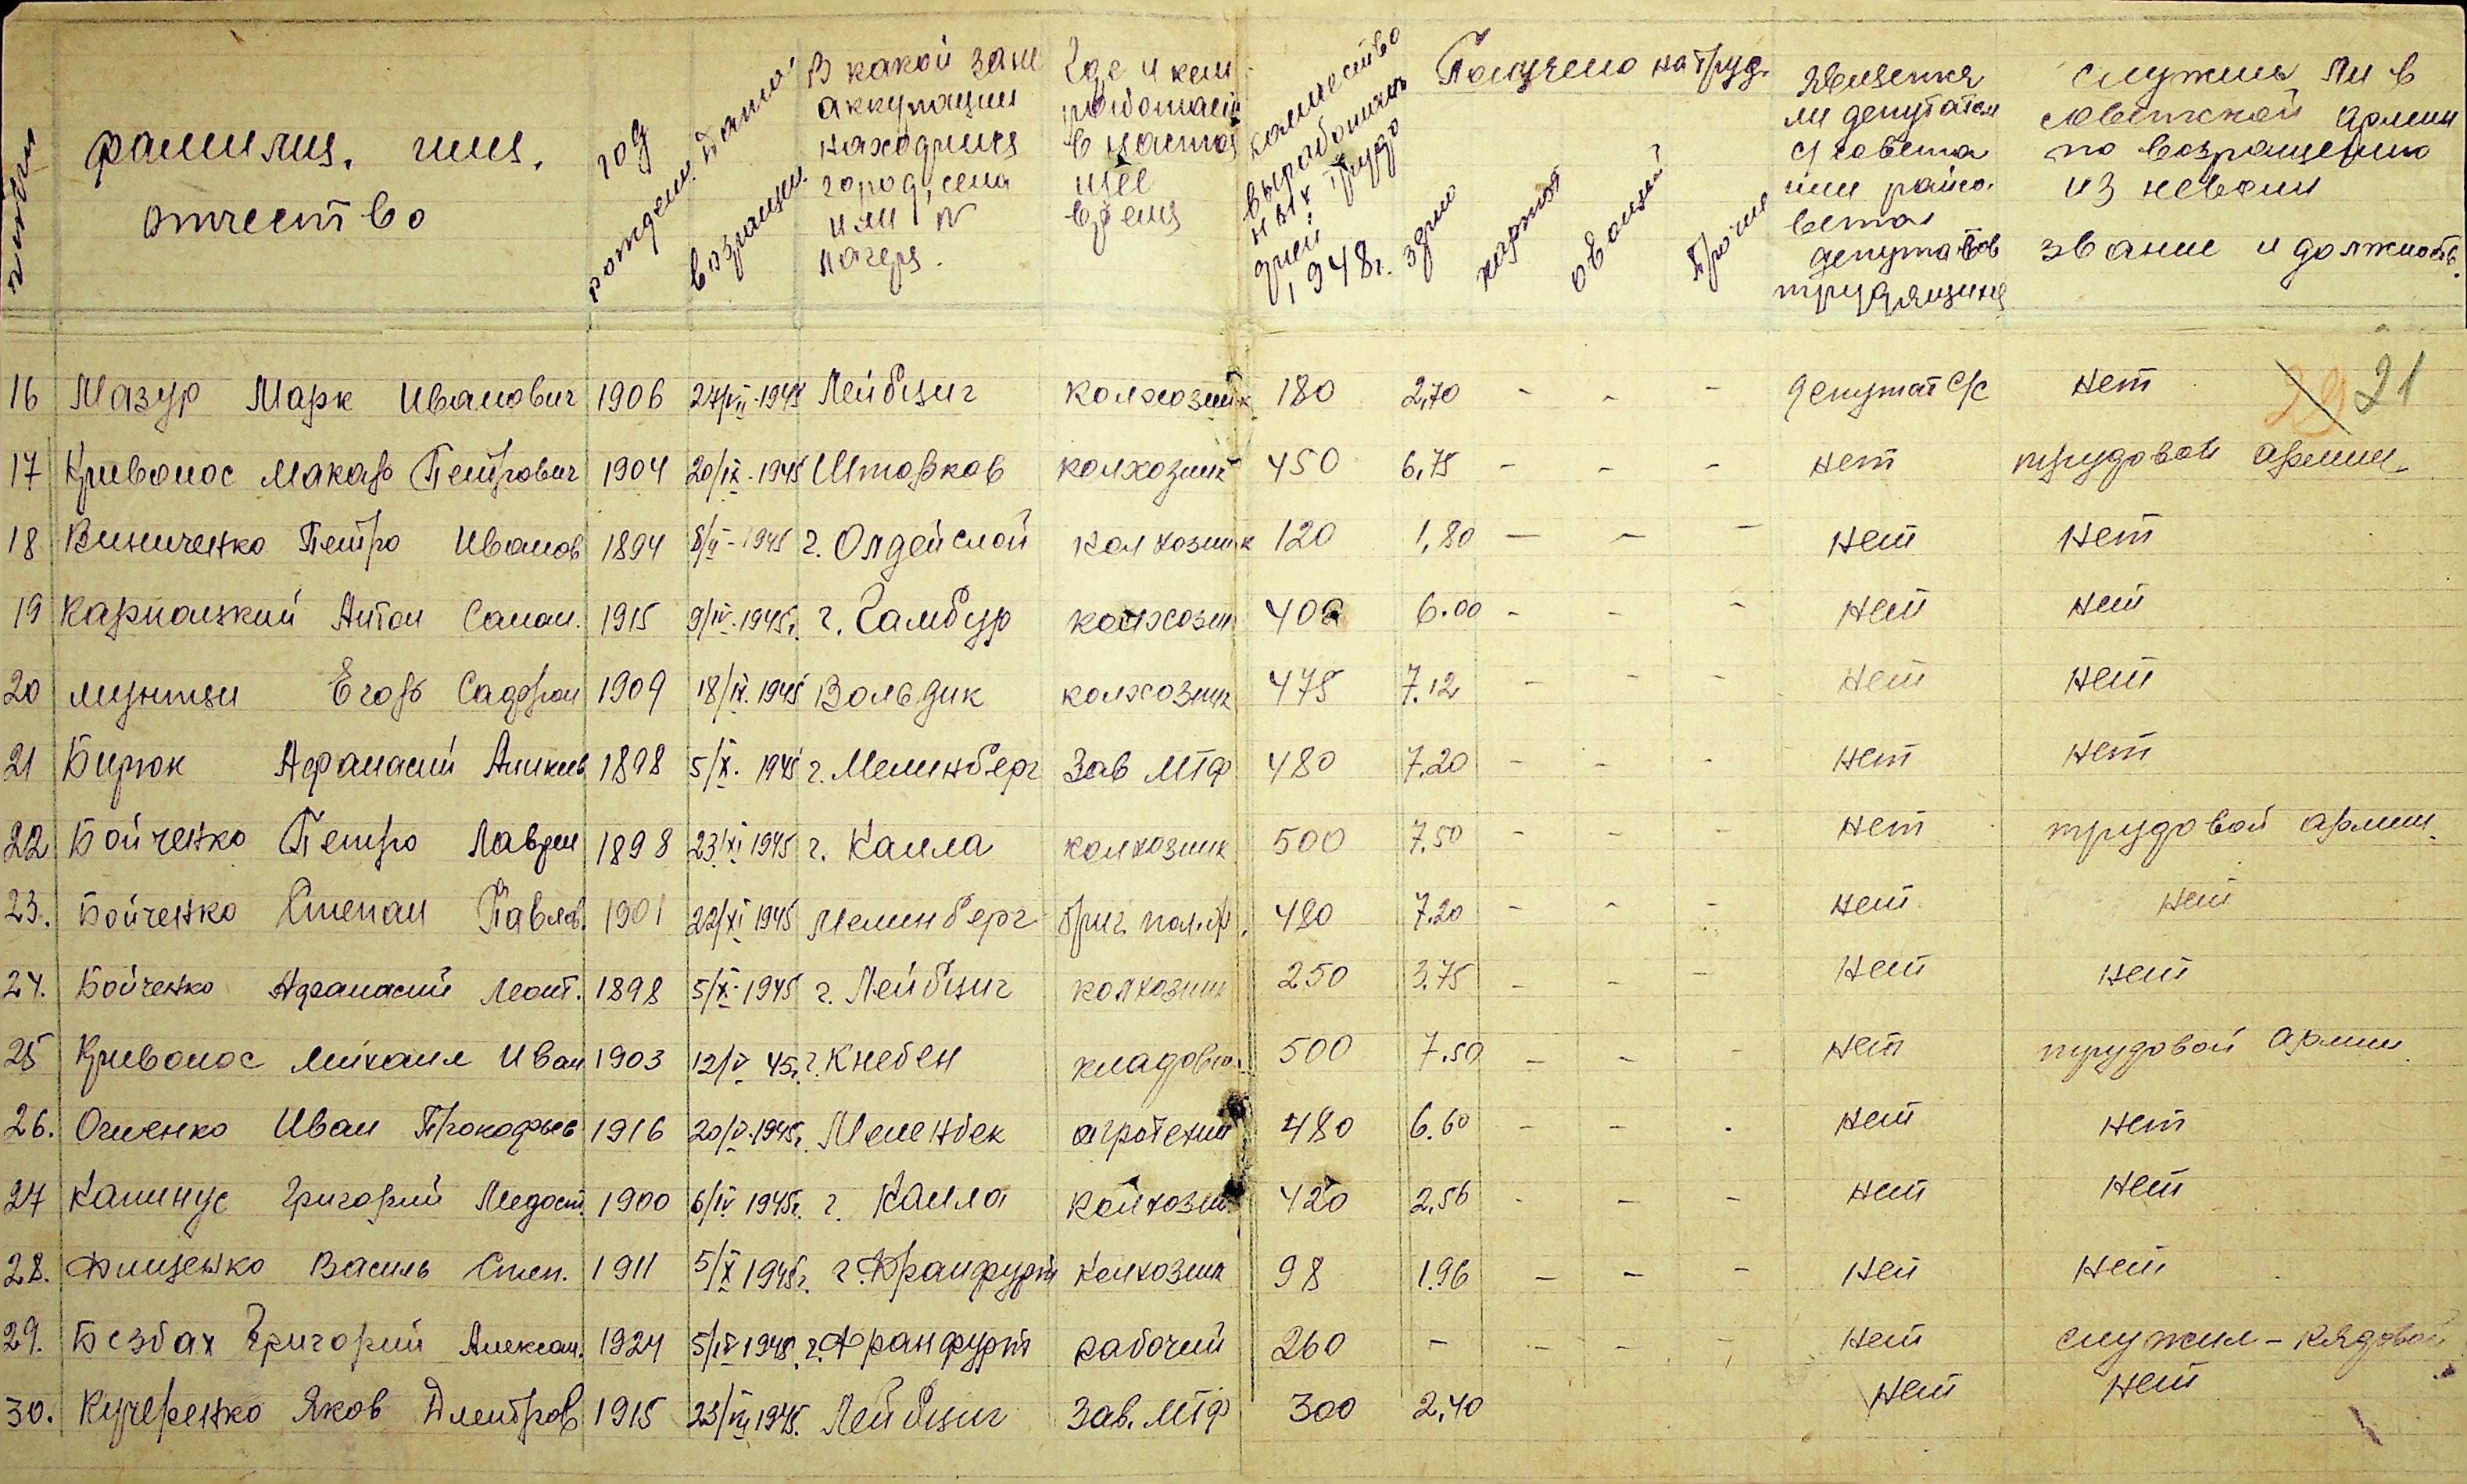 фамилия, имя, отчество
год рождения
дата возращен.
В какой зоне аккупации находился город, села или № лагеря.
Где и кем работает в настоящее время
количество выработанных трудодней 1948 г.
Получено на труд.
зерно
картоф
овощей
Прочие
Является ли депутатом с/совета или райсовета депутатов трудящихся
служил ли в советской армии по возращению из неволи звание и должность.
29 21
16 Мазур Марк Иванович 1906 27/VII-1945 Лейбциг колхозник 180 2,70 - - - депутат с/с нет
17 Кривонос Макарь Петрович 1904 20/IX-1945 Шторков колхозник 450 6,75 - - - нет трудовой армии
18 Виниченко Петро Иванов 1894 8/V-1945 г. Олдейслой колхозник 120 1,80 - - - нет нет
19 Карполизкий Антон Саман. 1915 9/IV-1945г. г. Гамбур колхозн 400 6.00 - - - нет нет
20 мунтян Егорь Сафрон 1909 18/IX.1945 Вольдик колхозник 475 7.12 - - - нет нет
21 Бирюк Афанасий Аникив 1898 5/X.1945 г. Мелинберг Зав МТФ 480 7.20 - - - нет нет
22 Бойченко Петро Лаврен 1898 23/XI 1945 г. Калла колхозник 500 7.50 - - - нет трудовой армии.
23. Бойченко Степан Павлов. 1901 22/XI 1945 Мелинберг бриг. пол. 480 7.20 - - - нет нет
24. Бойченко Афанасий Леонт. 1898 5/X-1945 г. Лейбциг колхозник 250 3.75 - - - нет нет
25 Кривонос михаил Иван 1903 12/V 45г. г. Кнебен кладовщ. 500 7.50 - - - нет трудовой армии
26. Огиенко Иван Прокофьев 1916 20/V-1945г. Меленбек агротехник 480 6.60 - - . нет нет
27 Капинус Григорий Медост. 1900 6/IV 1945г. г. Калла колхозн. 420 2.56 - - - нет нет
28. Фищенко Василь Степ. 1911 5/X 1945г. г. Франфурт колхозник 98 1.96 - - - нет нет
29. Безбах Григорий Алексан. 1924 5/IV 1948 г. Франфурт рабочий 260 - - - - нет служил - Рядовой
30. Кучеренко Яков Дмитров 1915 23/VII 1945. Лейбциг Зав. МТФ 300 2,40 нет нет